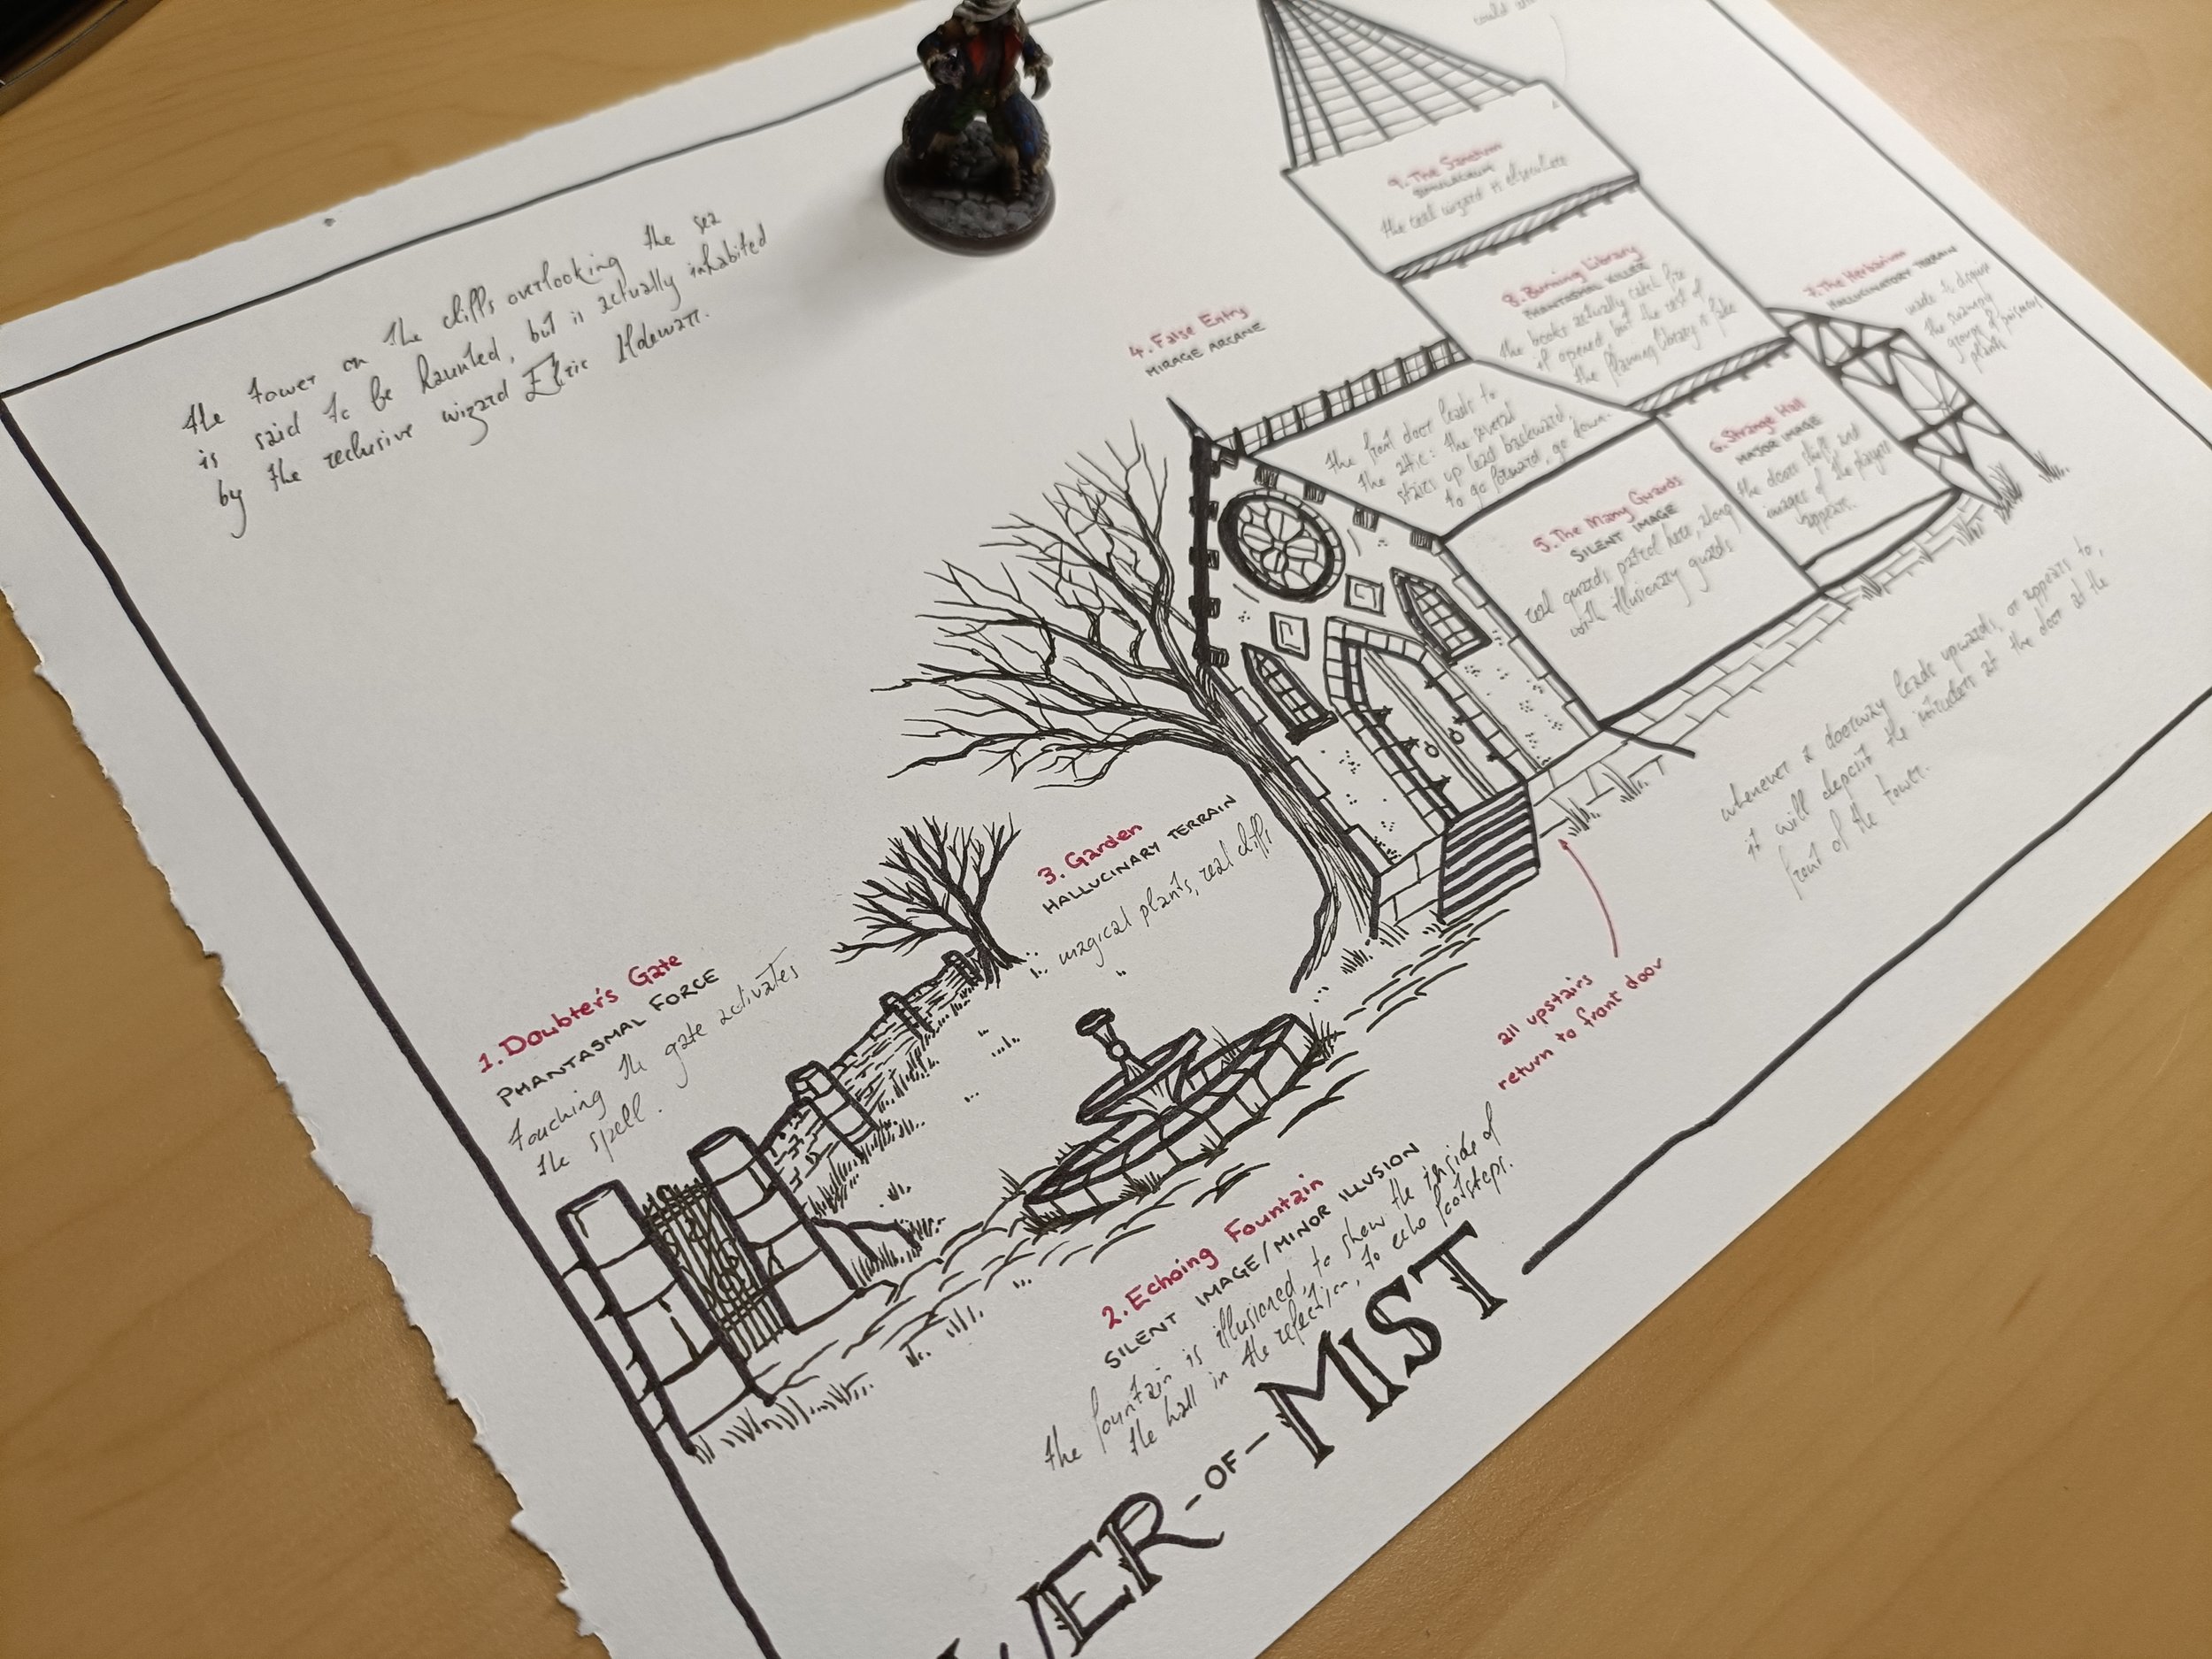 the tower on the cliffs overlooking the sea
is said to be haunted, but is actually inhabited
by the reclusive wizard
could
9. The Sanctum
SIMULACRUM
the real wizard is elsewhere
8. Burning Library
PHANTASMAL KILLER
the books actually catch fire
if opened, but the rest of
the flaming library is fake
7. The Herbarium
HALLUCINATORY TERRAIN
made to disguise
the swampy
growth of poisonous
plants
4. False Entry
MIRAGE ARCANE
the front door leads to
the attic: the several
stairs up lead backward,
to go forward, go down.
6. Strange Hall
MAJOR IMAGE
the doors shift, and
images of the players
appear.
5. The Many Guards
SILENT IMAGE
real guards patrol here, along
with illusionary guards
whenever a doorway leads upwards, or appears to,
it will deposit the intruders at the door at the
front of the tower.
3. Garden
HALLUCINARY TERRAIN
magical plants, real cliffs
1. Doubter's Gate
PHANTASMAL FORCE
touching the gate activates
the spell.
all upstairs
return to front door
2. Echoing Fountain
SILENT IMAGE/MINOR ILLUSION
the fountain is illusioned, to show the inside of
the hall in the refection, to echo footsteps.
WER-OF-MIST